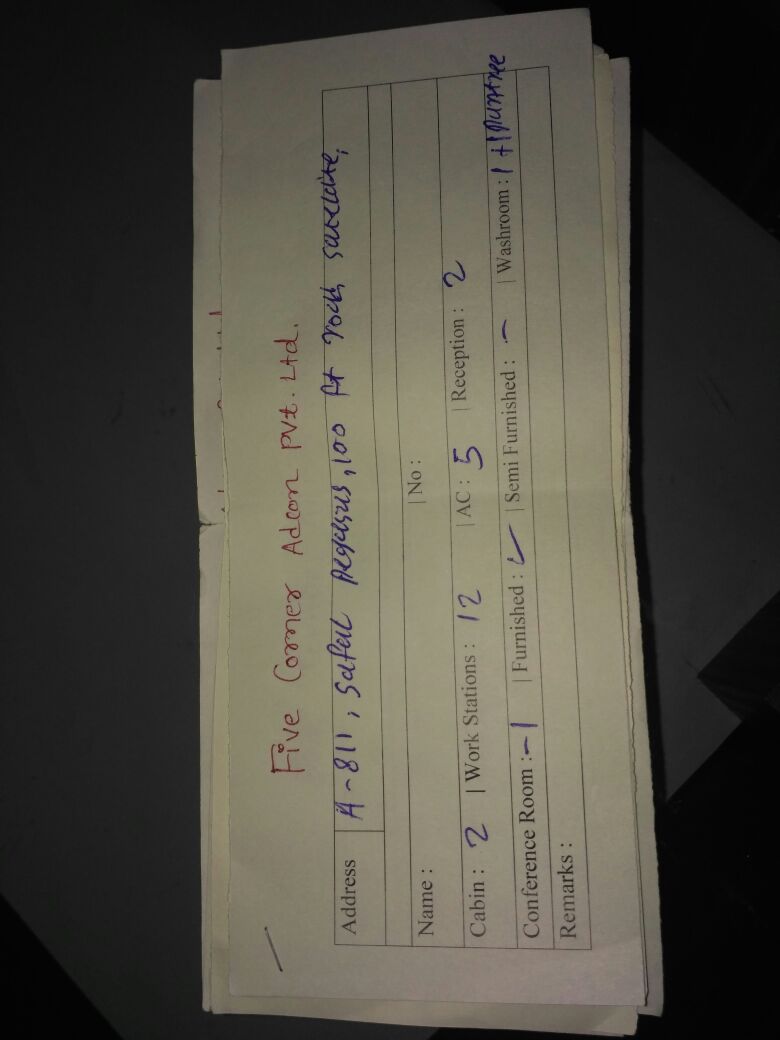 Five Corner Adcon Pvt. Ltd.
Address A-811, Safal Pegasus, 100 ft road, satelite,
Name : | No :
Cabin : 2 | Work Stations : 12 | AC : 5 | Reception : 2
Conference Room :- 1 | Furnished : ✓ | Semi Furnished : - | Washroom : 1 + 1 Pantree
Remarks :